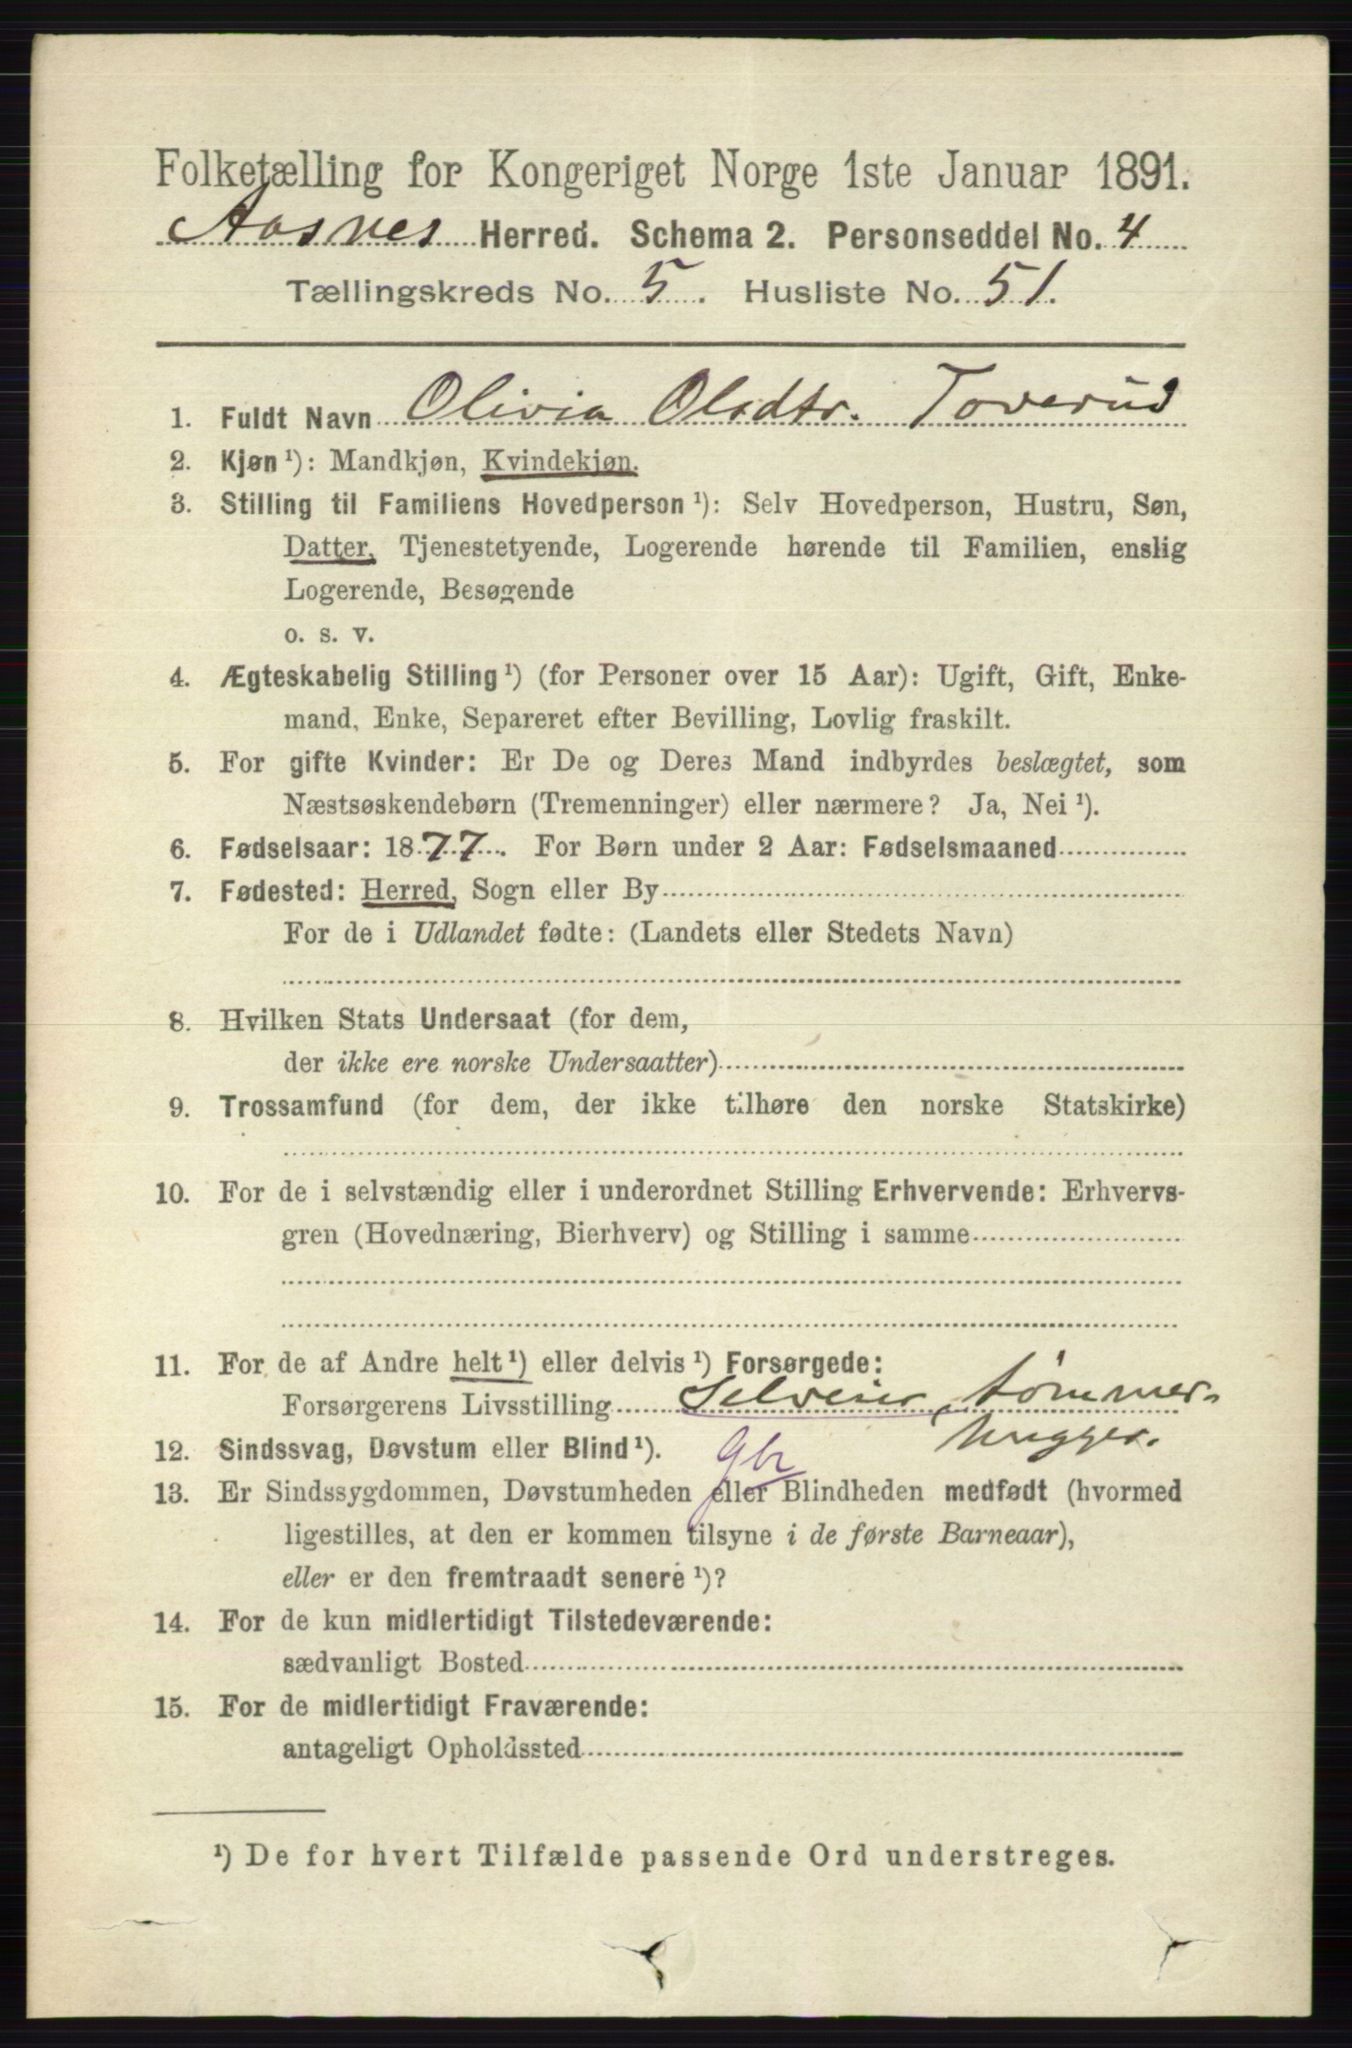 Folketælling for Kongeriget Norge 1ste Januar 1891.
Aasnes Herred. Schema 2. Personseddel No. 4
Tællingskreds No. 5. Husliste No. 51.
1. Fuldt Navn Olivia Olsdtr. Toverud
2. Kjøn ¹): Mandkjøn, Kvindekjøn.
3. Stilling til Familiens Hovedperson ¹): Selv Hovedperson, Hustru, Søn,
Datter, Tjenestetyende, Logerende hørende til Familien, enslig
Logerende, Besøgende
o. s. v.
4. Ægteskabelig Stilling ¹) (for Personer over 15 Aar): Ugift, Gift, Enke-
mand, Enke, Separeret efter Bevilling, Lovlig fraskilt.
5. For gifte Kvinder: Er De og Deres Mand indbyrdes beslægtet, som
Næstsøskendebørn (Tremenninger) eller nærmere? Ja, Nei ¹).
6. Fødselsaar: 1877. For Børn under 2 Aar: Fødselsmaaned
7. Fødested: Herred, Sogn eller By
For de i Udlandet fødte: (Landets eller Stedets Navn)
8. Hvilken Stats Undersaat (for dem,
der ikke ere norske Undersaatter)
9. Trossamfund (for dem, der ikke tilhøre den norske Statskirke)
10. For de i selvstændig eller i underordnet Stilling Erhvervende: Erhvervs-
gren (Hovednæring, Bierhverv) og Stilling i samme
11. For de af Andre helt ¹) eller delvis ¹) Forsørgede:
Forsørgerens Livsstilling Selveier, tømmer-
hugger.
12. Sindssvag, Døvstum eller Blind ¹). Gbr
13. Er Sindssygdommen, Døvstumheden eller Blindheden medfødt (hvormed
ligestilles, at den er kommen tilsyne i de første Barneaar),
eller er den fremtraadt senere ¹)?
14. For de kun midlertidigt Tilstedeværende:
sædvanligt Bosted
15. For de midlertidigt Fraværende:
antageligt Opholdssted
¹) De for hvert Tilfælde passende Ord understreges.